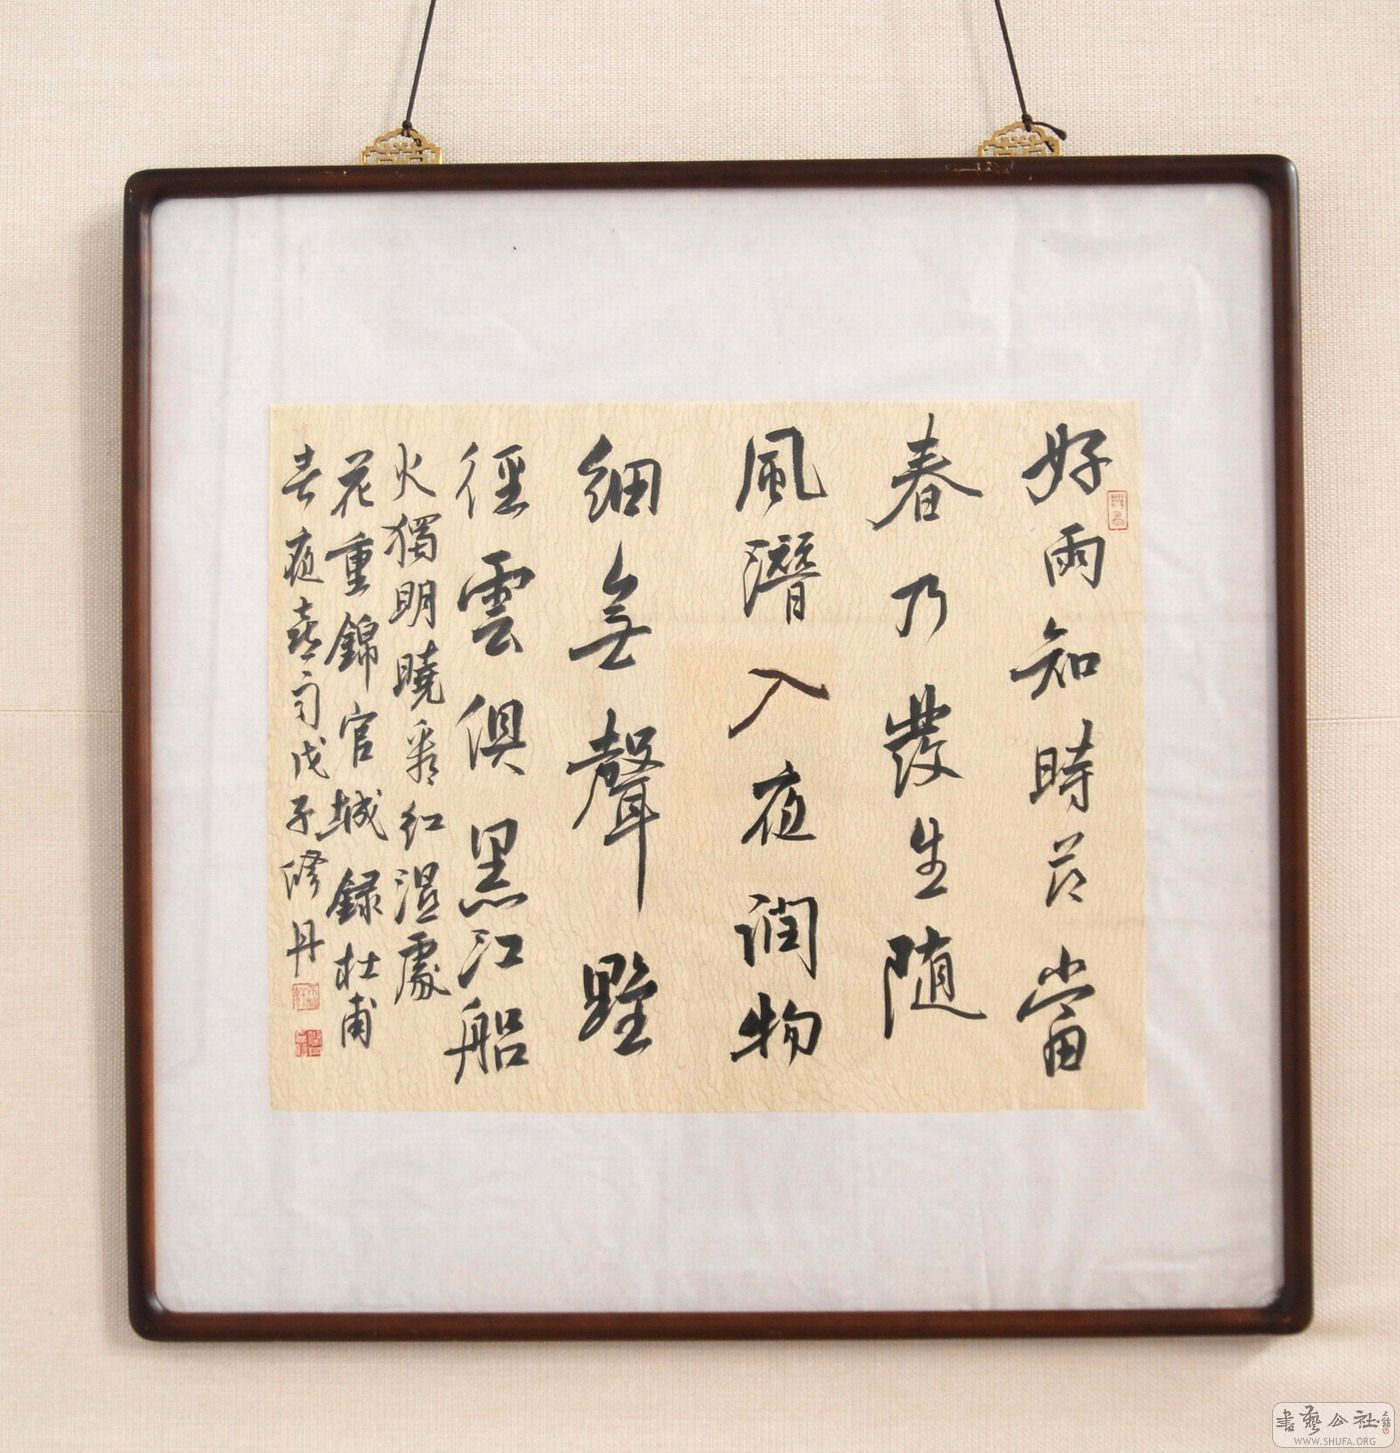 好雨知時节當
春乃發生随
風潛入夜润物
細無聲野
徑雲俱黑江船
火獨明曉看红湿處
花重錦官城録杜甫
春夜喜雨戊子修丹
書藝公社
WWW.SHUFA.ORG